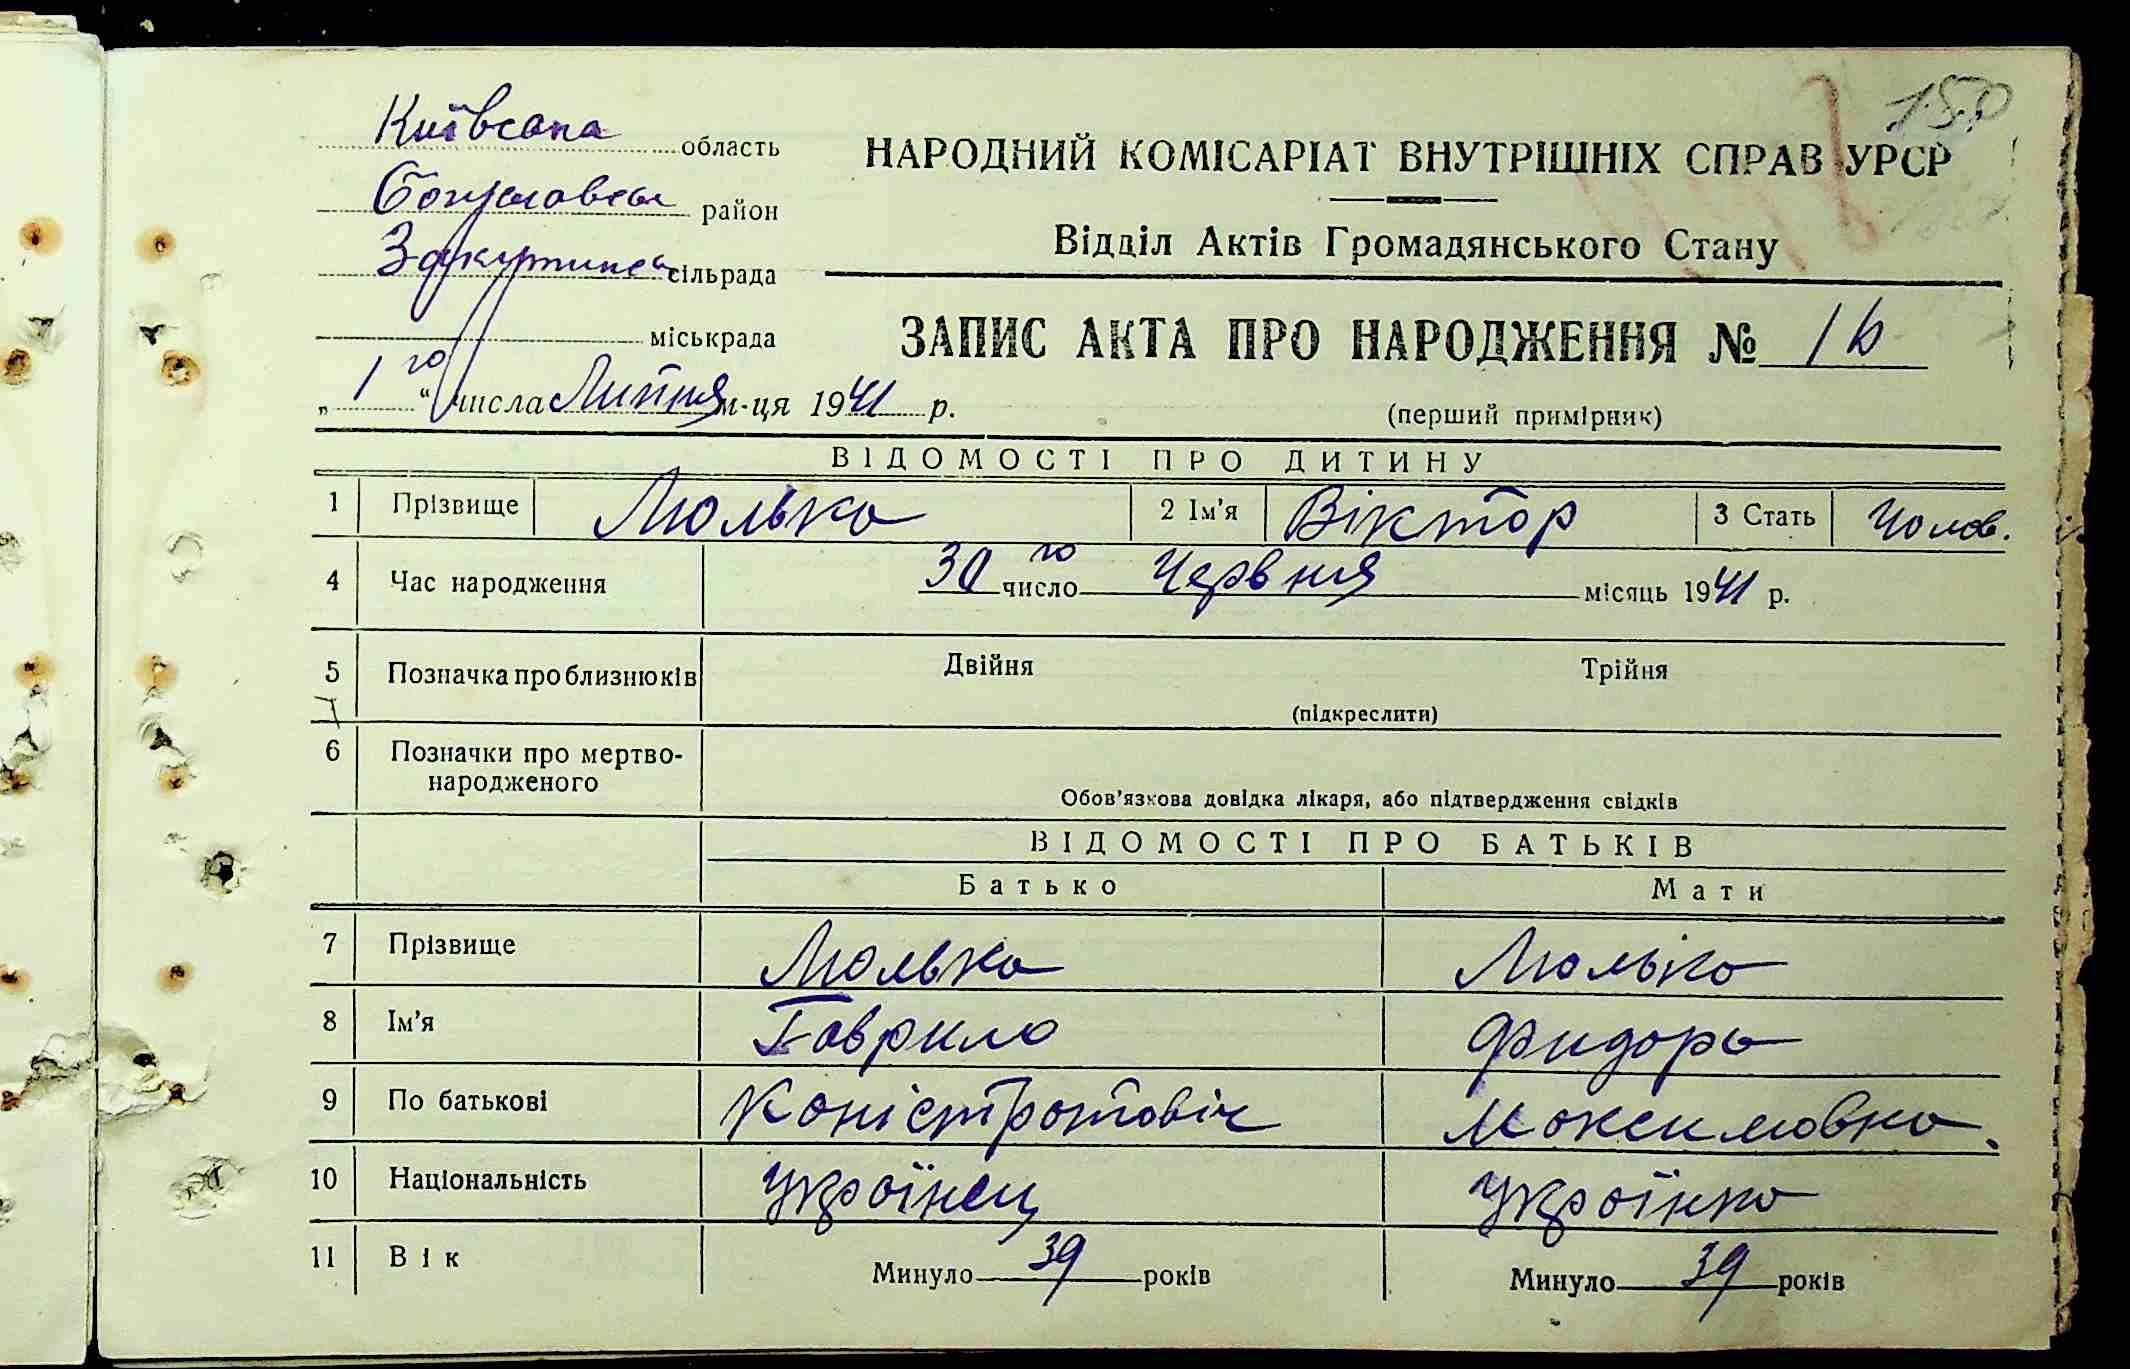 150
Київська область
НАРОДНИЙ КОМІСАРІАТ ВНУТРІШНІХ СПРАВ УРСР
Богуславськ район
Відділ Актів Громадянського Стану
сільрада
міськрада
ЗАПИС АКТА ПРО НАРОДЖЕННЯ № 16
„1го“ числа Липня м-ця 1941 р.
(перший примірник)
ВІДОМОСТІ ПРО ДИТИНУ
1 Прізвище Люлька 2 Ім'я Віктор 3 Стать Чолов.
4 Час народження 30го число Червня місяць 1941 р.
5 Позначка про близнюків Двійня Трійня
(підкреслити)
6 Позначки про мертво-
народженого
Обов'язкова довідка лікаря, або підтвердження свідків
ВІДОМОСТІ ПРО БАТЬКІВ
Батько Мати
7 Прізвище Люлька Люлька
8 Ім'я Гаврило Фидора
9 По батькові Коністротовіч Максимовна.
10 Національність Українец Українка
11 Вік Минуло 39 років Минуло 39 років